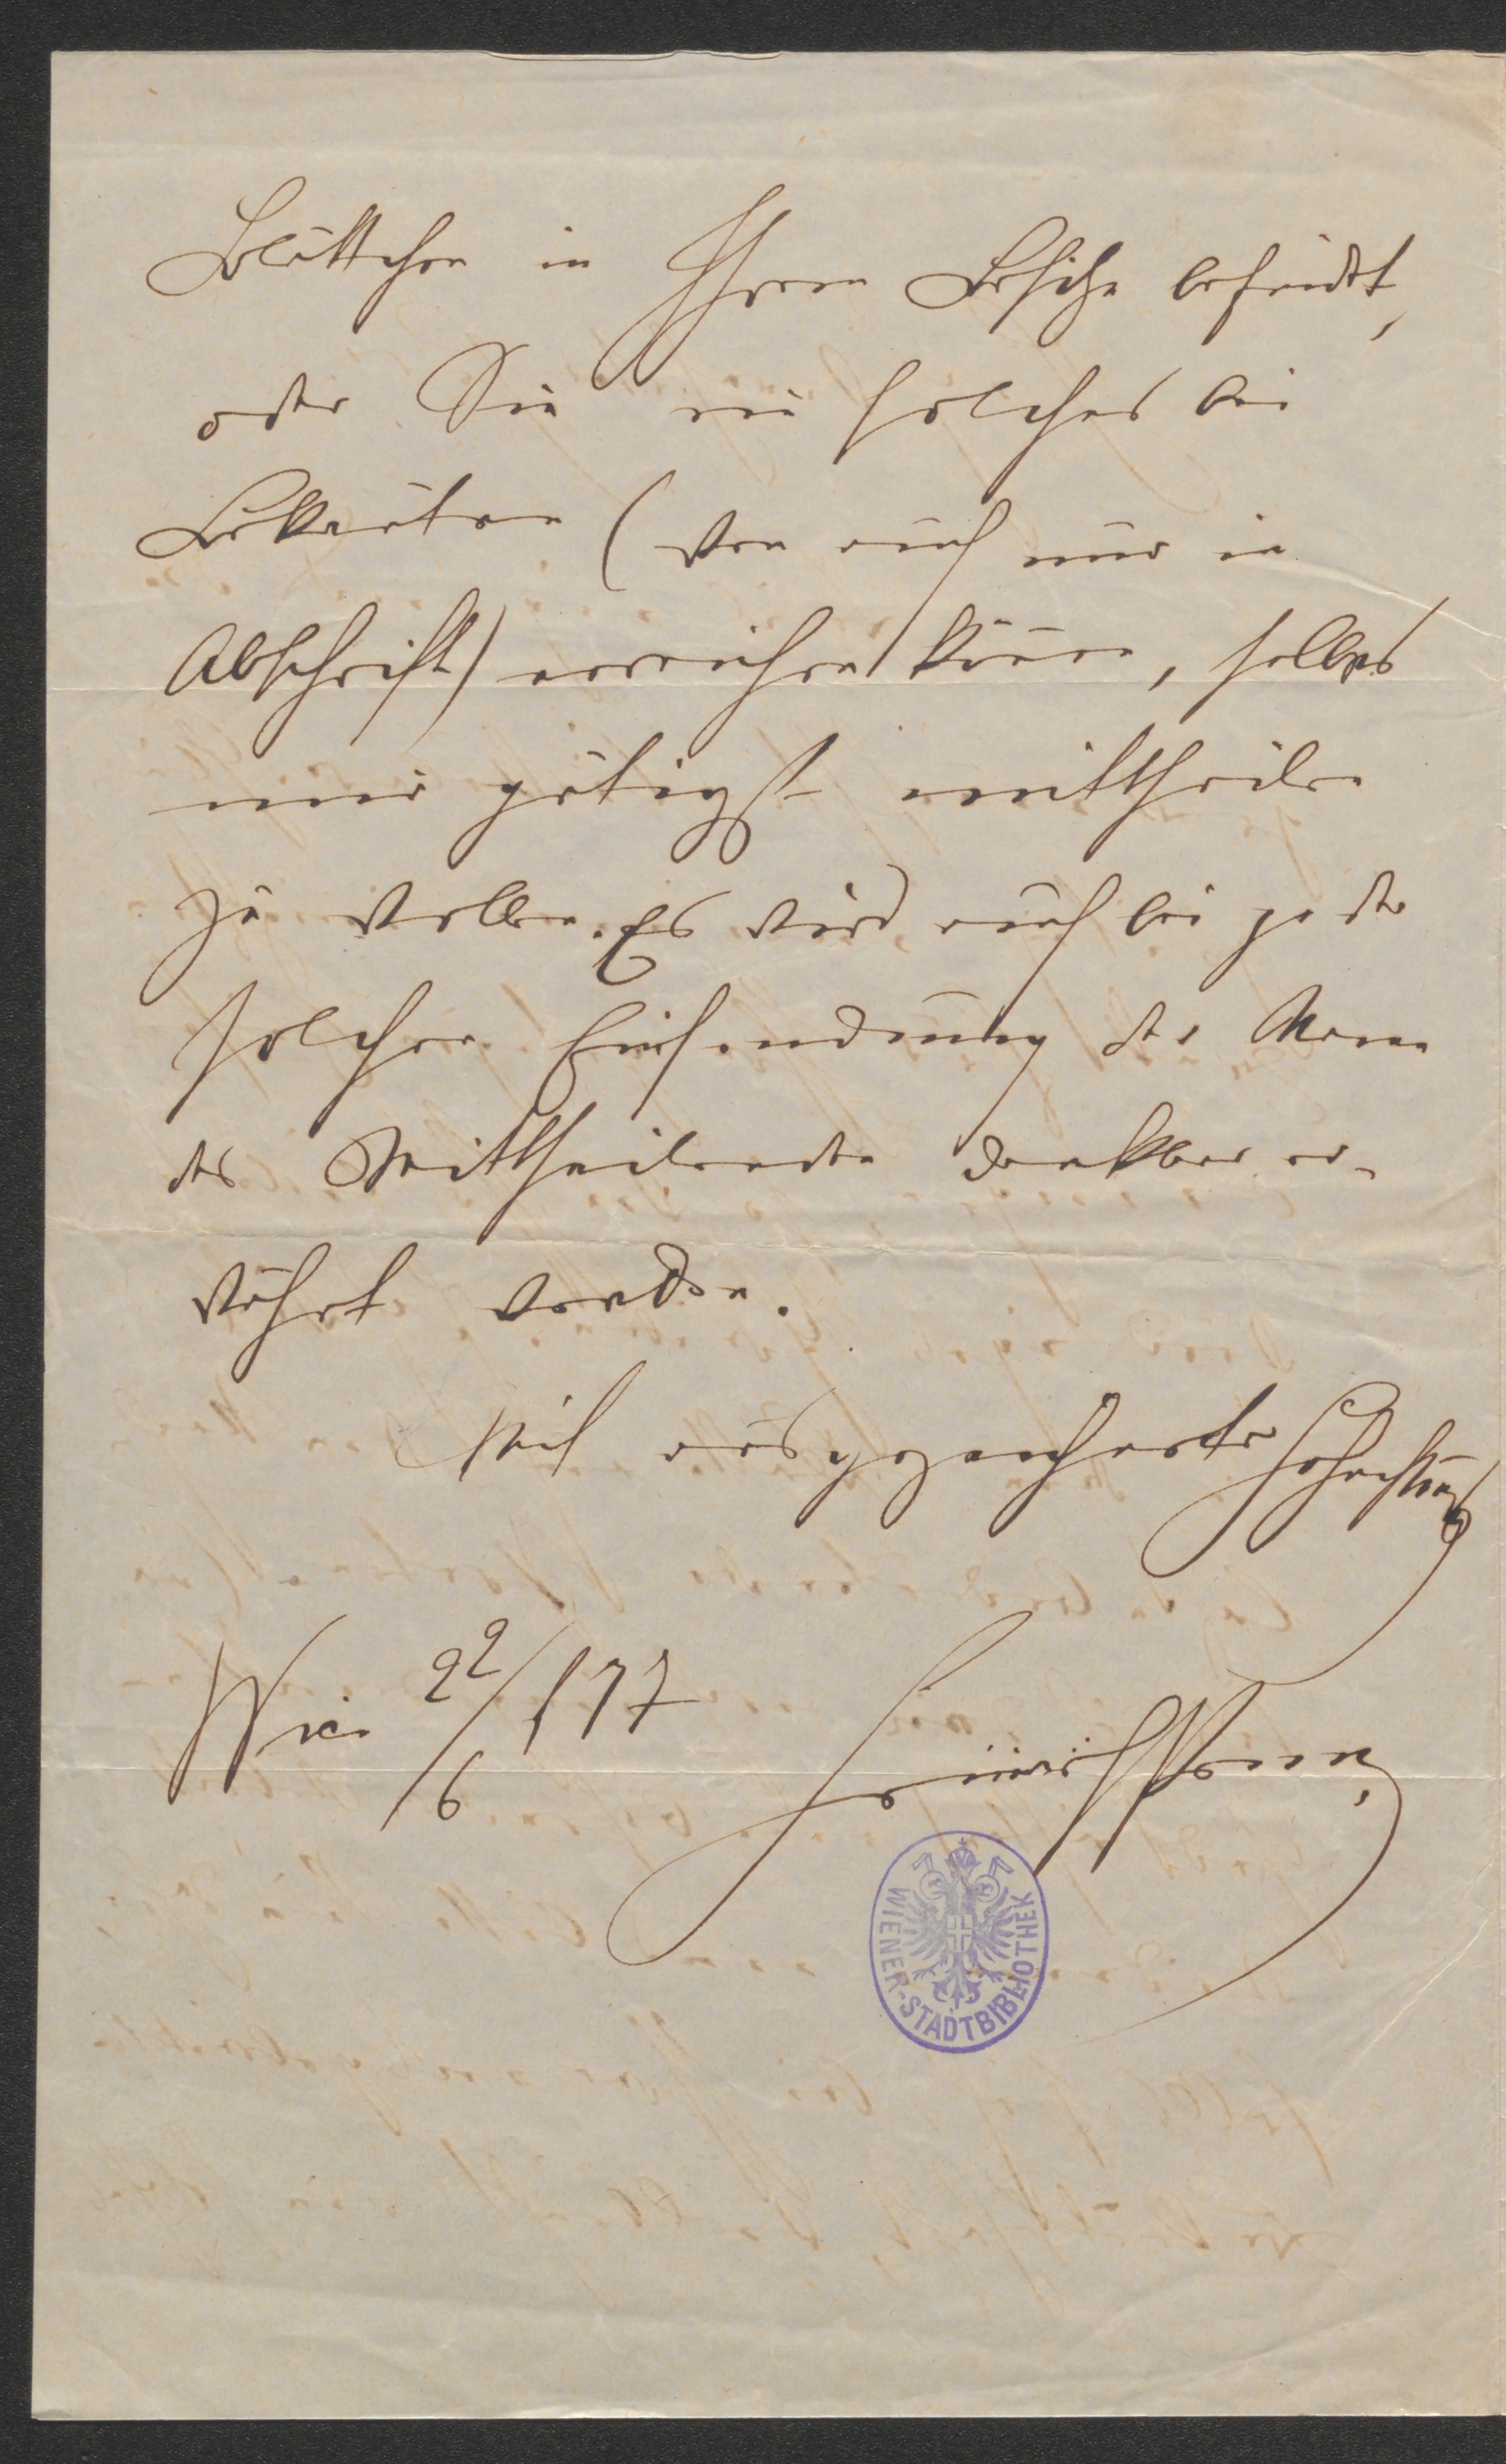 Blättchen in Ihrem Besitze befindet,
oder Sie ein solches bei
Bekannten (wen auch nur in
Abschrift) erreichen können, selbes
mir gütigst mittheilen
zu wollen. Es wird auch bei jeder
solchen Einsendung der Name
des Mittheilenden dankbar er-
wähnt werden.
Mit ausgezeichneter Hochachtung
Wien 22/6 177
WIENER-STADTBIBLIOTHEK